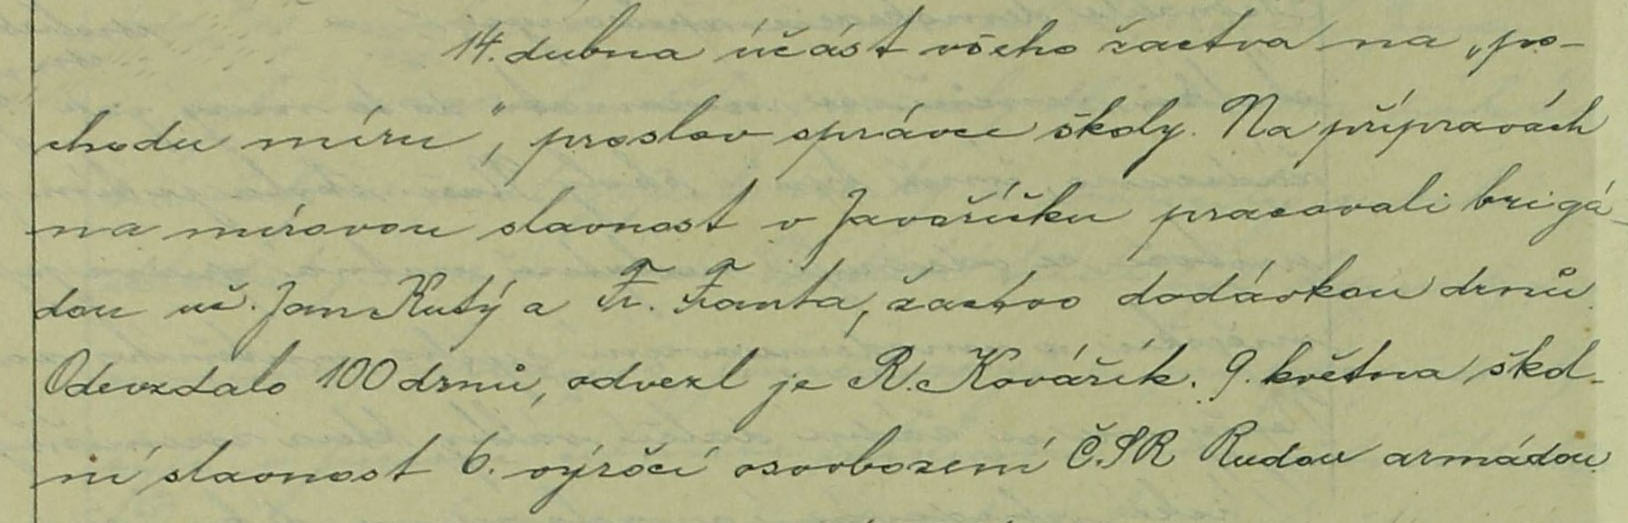 14. dubna účást všeho žactva na „po-
chodu míru“, proslov správce školy. Na přípravách
na mírovou slavnost v Javoříčku pracovali brigá-
dou uč. Jan Kutý a Fr. Fanta, žactvo dodávkou drnů.
Odevzdalo 100 drnů, odvezl je R. Kovářík. 9. května škol-
ní slavnost 6. výročí osvobození ČSR Rudou armádou.